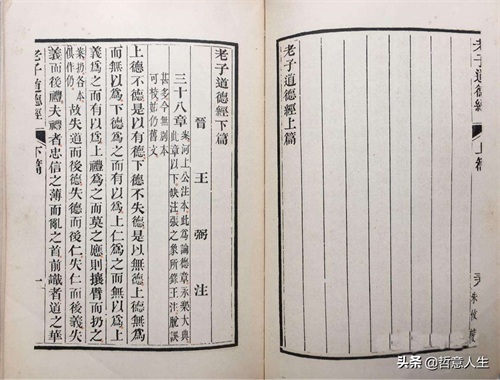 老子道德經 上篇
老子道德經上篇
老子道德經下篇
晉 王弼 注
三十八章
案河上公注本此爲論德章永樂大典
此章以下缺注張之象所錄王注脫誤
甚多今無別本
可校故仍舊文
上德不德是以有德下德不失德是以無德上德無爲
而無以爲下德爲之而有以爲上仁爲之而無以爲上
義爲之而有以爲上禮爲之而莫之應則攘臂而扔之
案扔各本俱作仍 故失道而後德失德而後仁失仁而後義失
義而後禮夫禮者忠信之薄而亂之首前識者道之華
老子道德經 下篇 一
头条 @哲意人生